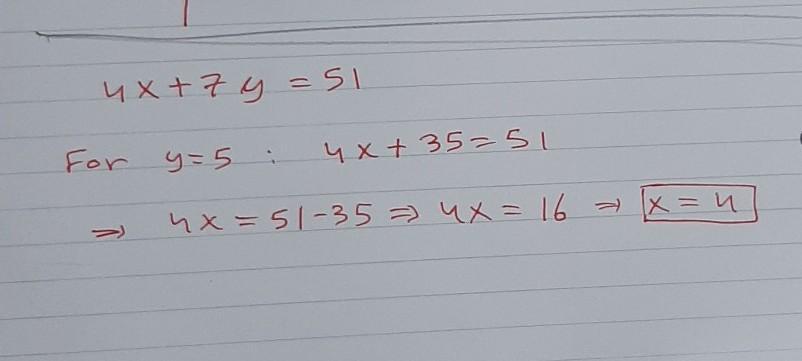 4x+7y=51
For y=5 : 4x+35=51
⇒ 4x=51-35 ⇒ 4x=16 ⇒ x=4